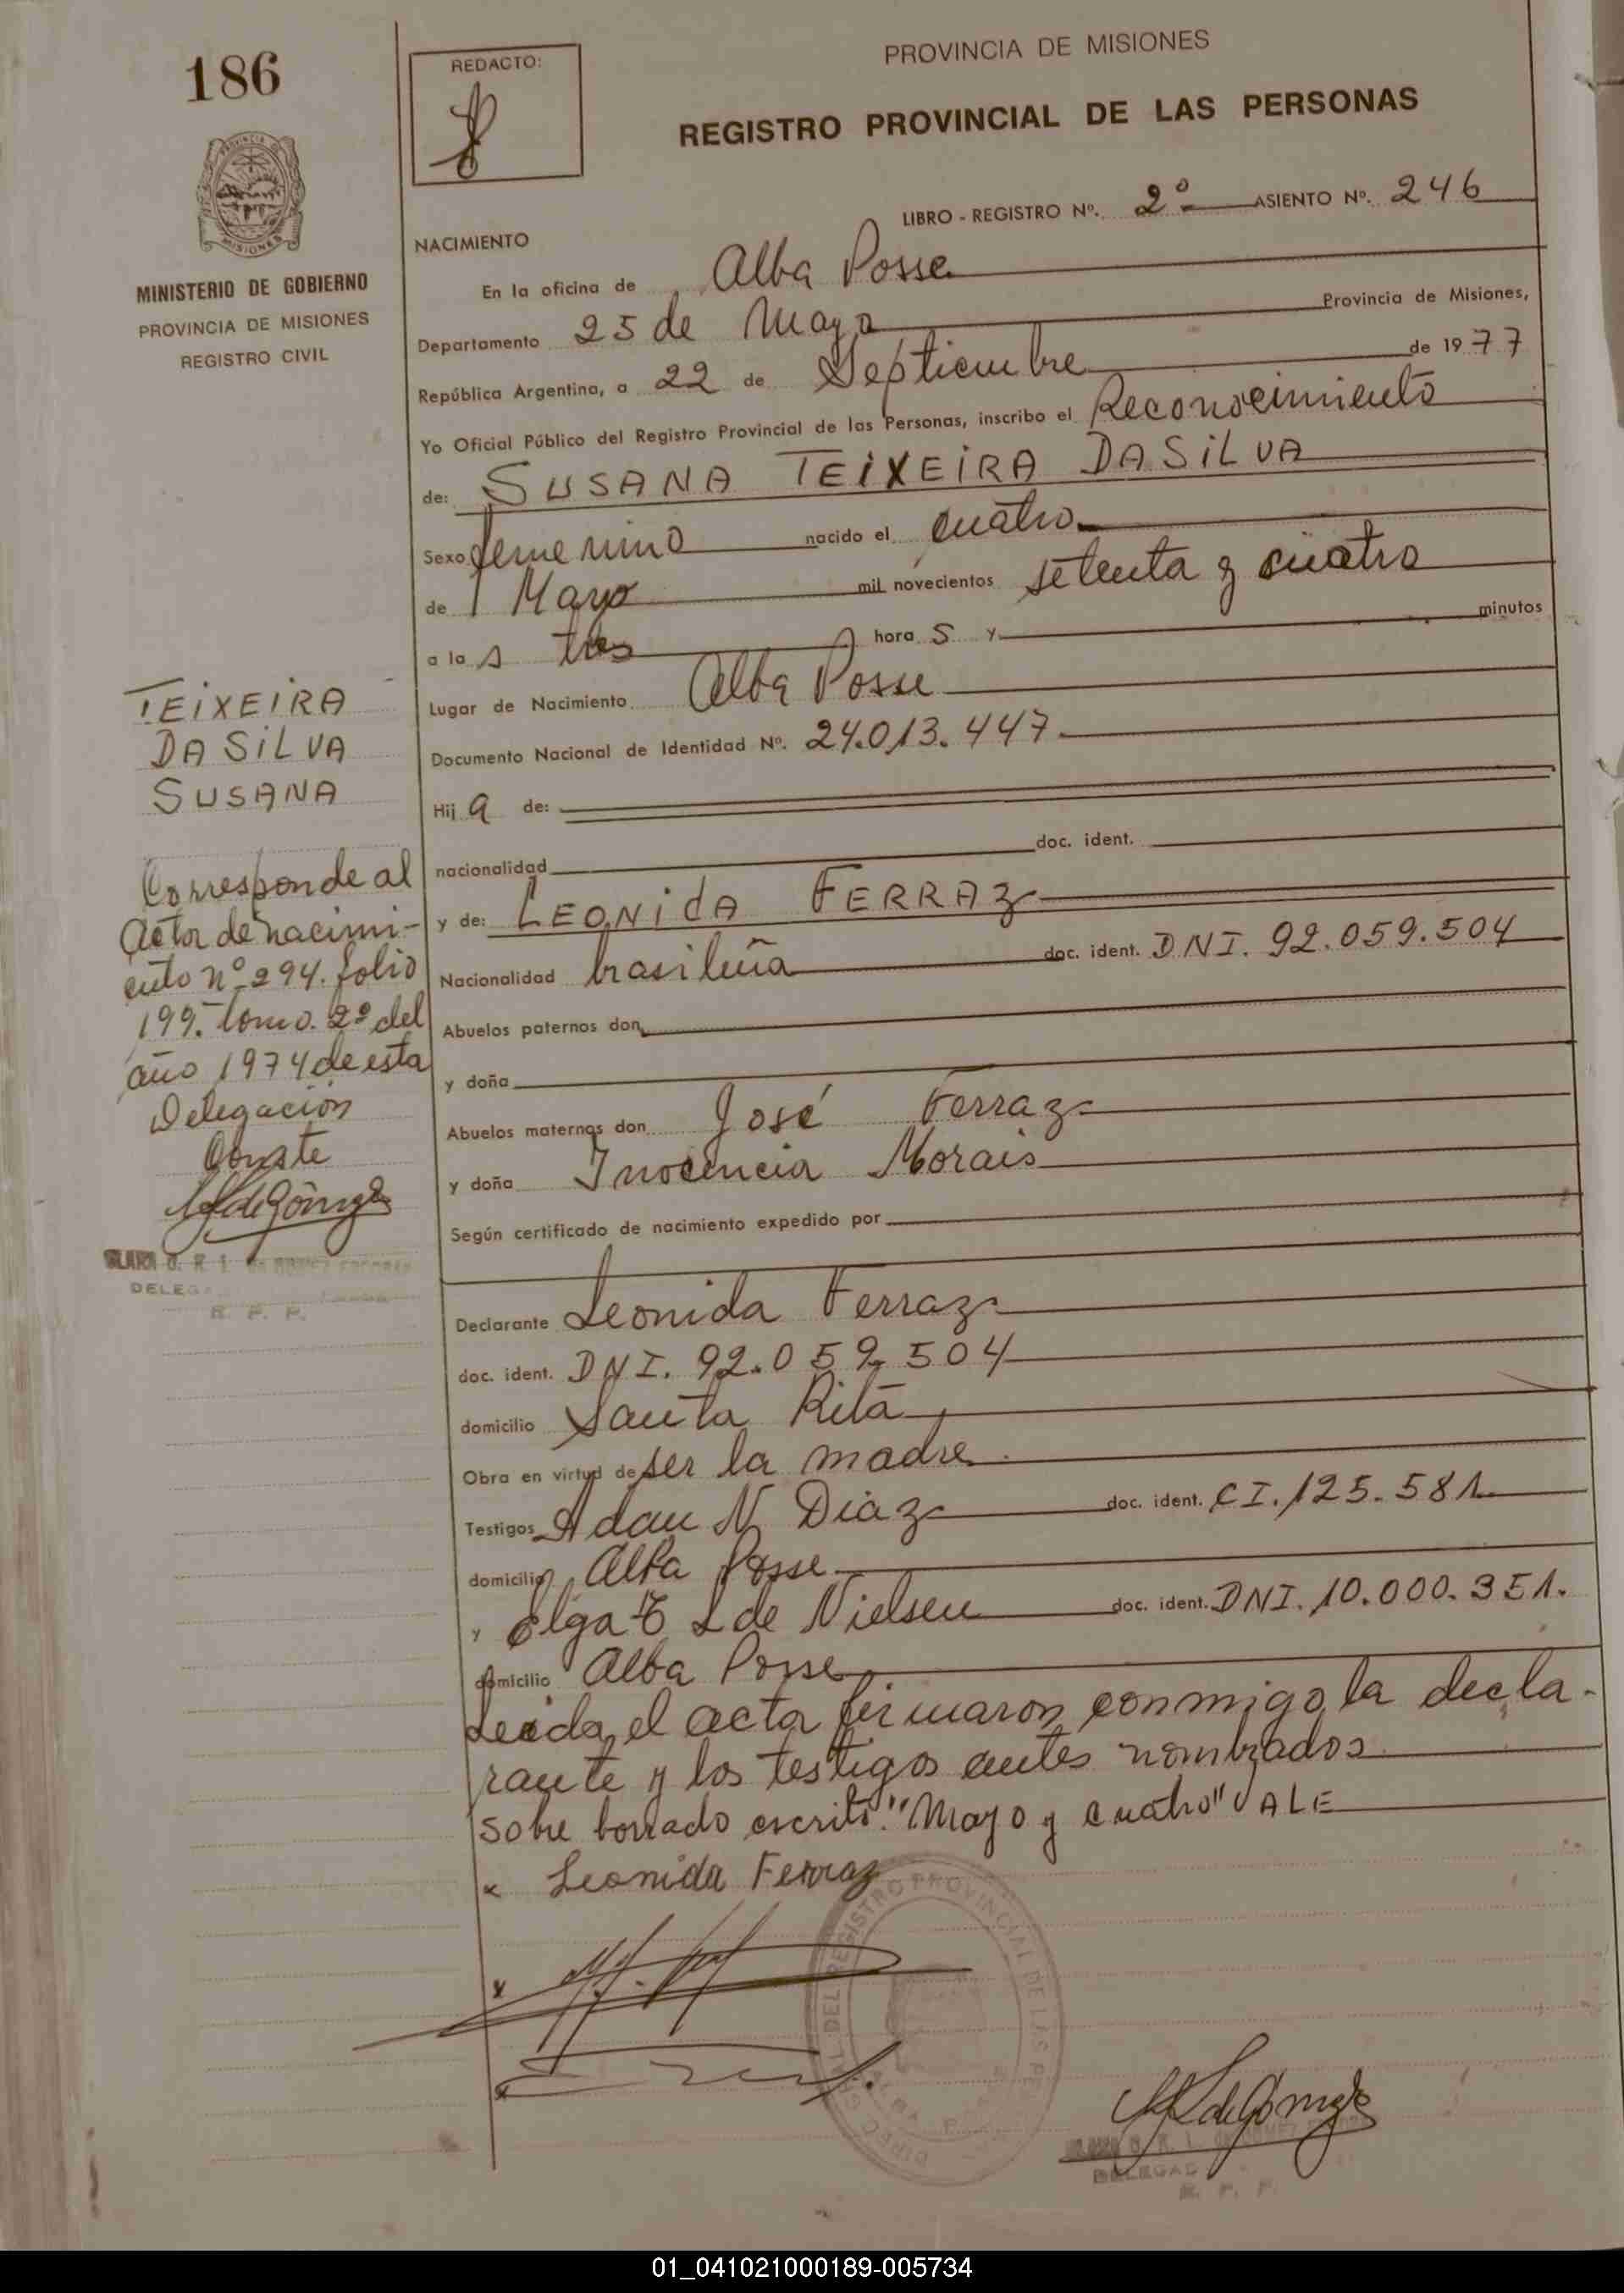 186
REDACTO:
PROVINCIA DE MISIONES
REGISTRO PROVINCIAL DE LAS PERSONAS
LIBRO - REGISTRO Nº. 2º ASIENTO Nº. 246
MISIONES
MINISTERIO DE GOBIERNO
PROVINCIA DE MISIONES
REGISTRO CIVIL
NACIMIENTO
En la oficina de Alba Posse
Departamento 25 de Mayo Provincia de Misiones,
República Argentina, a 22 de Septiembre de 1977
Yo Oficial Público del Registro Provincial de las Personas, inscribo el Reconocimiento
de: SUSANA TEIXEIRA DA SILVA
Sexo femenino nacido el cuatro
de Mayo mil novecientos setenta y cuatro
a la s tres hora s y minutos
Lugar de Nacimiento Alba Posse
Documento Nacional de Identidad Nº. 24.013.447
Hij a de:
nacionalidad doc. ident.
y de: LEONIdA FERRAZ
Nacionalidad brasileña doc. ident. DNI. 92.059.504
Abuelos paternos don
y doña
Abuelos maternos don José Ferraz
y doña Inocencia Morais
Según certificado de nacimiento expedido por
TEIXEIRA
DA SILVA
SUSANA
Corresponde al
Acta de nacimi-
ento nº 294. folio
199. tomo. 2º del
año 1974 de esta
Delegación
Conste
DELEG
R. P. P.
Declarante Leonida Ferraz
doc. ident. DNI. 92.059.504
domicilio Santa Rita
Obra en virtud de ser la madre
Testigos Adan N Diaz doc. ident. CI. 125.581.
domicilio Alba Posse
y Elga E L de Nielsen doc. ident. DNI. 10.000.351.
domicilio Alba Posse
Leida el acta firmaron conmigo la decla-
rante y los testigos antes nombrados
sobre borrado escrito: "Mayo y cuatro" VALE
x Leonida Ferraz
x
x
REGISTRO PROVINCIAL DE LAS PE
DELEGAD
R. P. P.
01_041021000189-005734